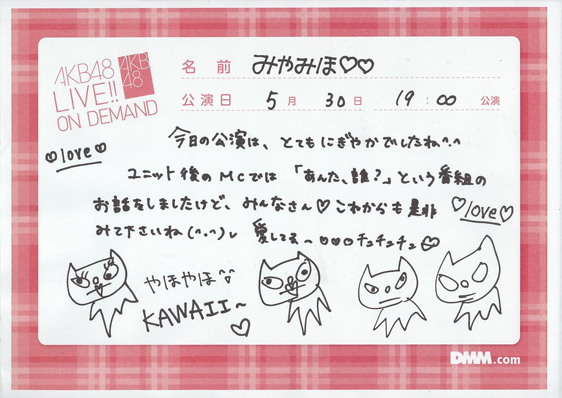 AKB48
LIVE!!
ON DEMAND
AKB
48
名前 みやみほ♡♡
公演日 5月 30日 19:00 公演
今日の公演は、とてもにぎやかでしたね^.^
♡love♡
ユニット後のMCでは「あんた、誰?」という番組の
お話をしましたけど、みんなさん♡これからも是非
♡love♡
みて下さいね(^.^)レ 愛してる〜♡♡♡チュチュチュ♡
やほやほ^^
KAWAII~
♡
DMM.com